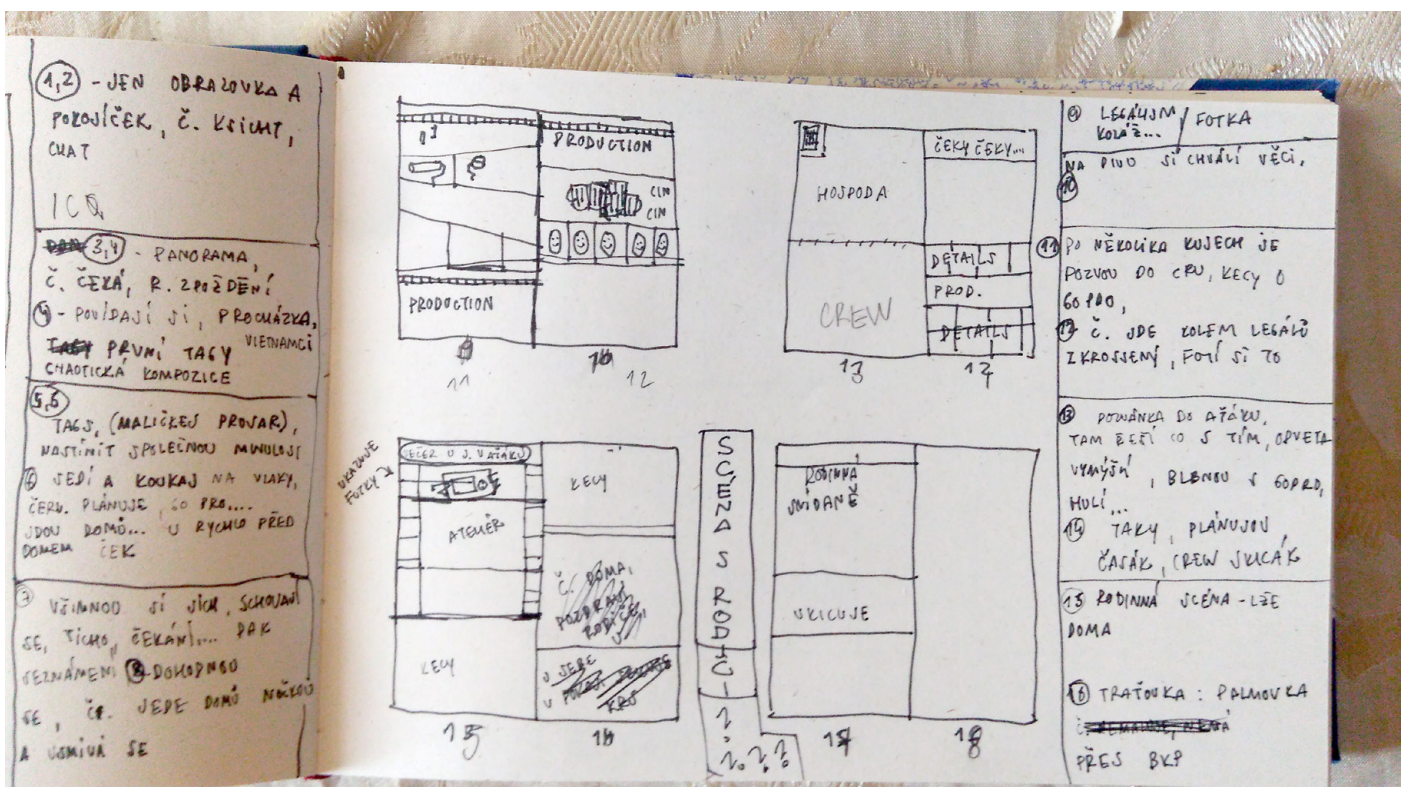 1,2 - JEN OBRAZOVKA A
POKOJÍČEK, Č. KSICHT,
CHAT
ICQ
3,4 - PANORAMA,
Č. ČEKÁ, R. ZPOŽDĚNÍ
4 - POVÍDAJÍ SI, PROCHÁZKA,
VIETNAMCI
PRVNÍ TAGY
CHAOTICKÁ KOMPOZICE
5,6
TAGS, (MALIČKEJ PROVAR),
NASTÍNIT SPOLEČNOU MINULOST
6 SEDÍ A KOUKAJ NA VLAKY,
ČERV. PLÁNUJE, GO PRO....
JDOU DOMŮ... U RYCHLO PŘED
DOMEM ČEK
7 VŠIMNOU SI JICH, SCHOVAJÍ
SE, TICHO, ČEKÁNÍ... PAK
SEZNÁMENÍ 8 DOHODNOU
SE, JEDE DOMŮ
A USMÍVÁ SE
PRODUCTION
CINK
CINK
PRODUCTION
11
12
ČEKY ČEKY...
HOSPODA
DETAILS
PROD.
CREW
DETAILS
13
UKAZUJE
FOTKY
VEČER U J. V AŤÁKU
KECY
ATELIÉR
Č. DOMA,
POZDRAVÍ
RODIČE,
KECY
15
16
SCÉNA S RODIČI
? ? ? ?
RODINNÁ
SNÍDANĚ
SKICUJE
18
9 LEGÁLUJM / FOTKA
KOLÁŽ...
NA PIVO SI CHVÁLÍ VĚCI,
10
11 PO NĚKOLIKA KUSECH JE
POZVOU DO CRU, KECY O
GO PRO,
12 Č. JDE KOLEM LEGÁLŮ
ZKROSSENÝ, FOTÍ SI TO
13 POZVÁNKA DO AŤÁKU,
TAM ŘEŠÍ CO S TÍM, ODVETA
VYMÝŠLÍ, BLBNOU S GOPRO,
HULÍ...
14 TAKY, PLÁNUJOU
ČASÁK, CREW SKICÁK
15 RODINNÁ SCÉNA - LŽE
DOMA
16 TRAŤOVKA: PALMOVKA
PŘES BKP